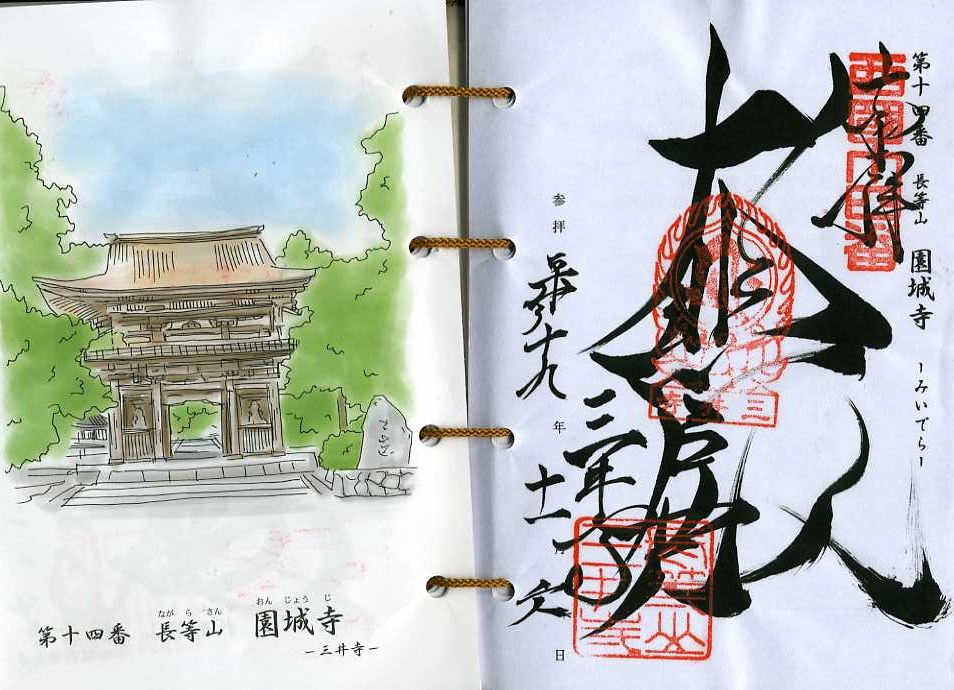 なが ら さん おん じょう じ
第十四番 長等山 園城寺
−三井寺−
第十四番 長等山 園城寺 −みいでら−
西国十四番
奉拝
大悲殿
三井寺
参拝 平成十九年 十一月 日